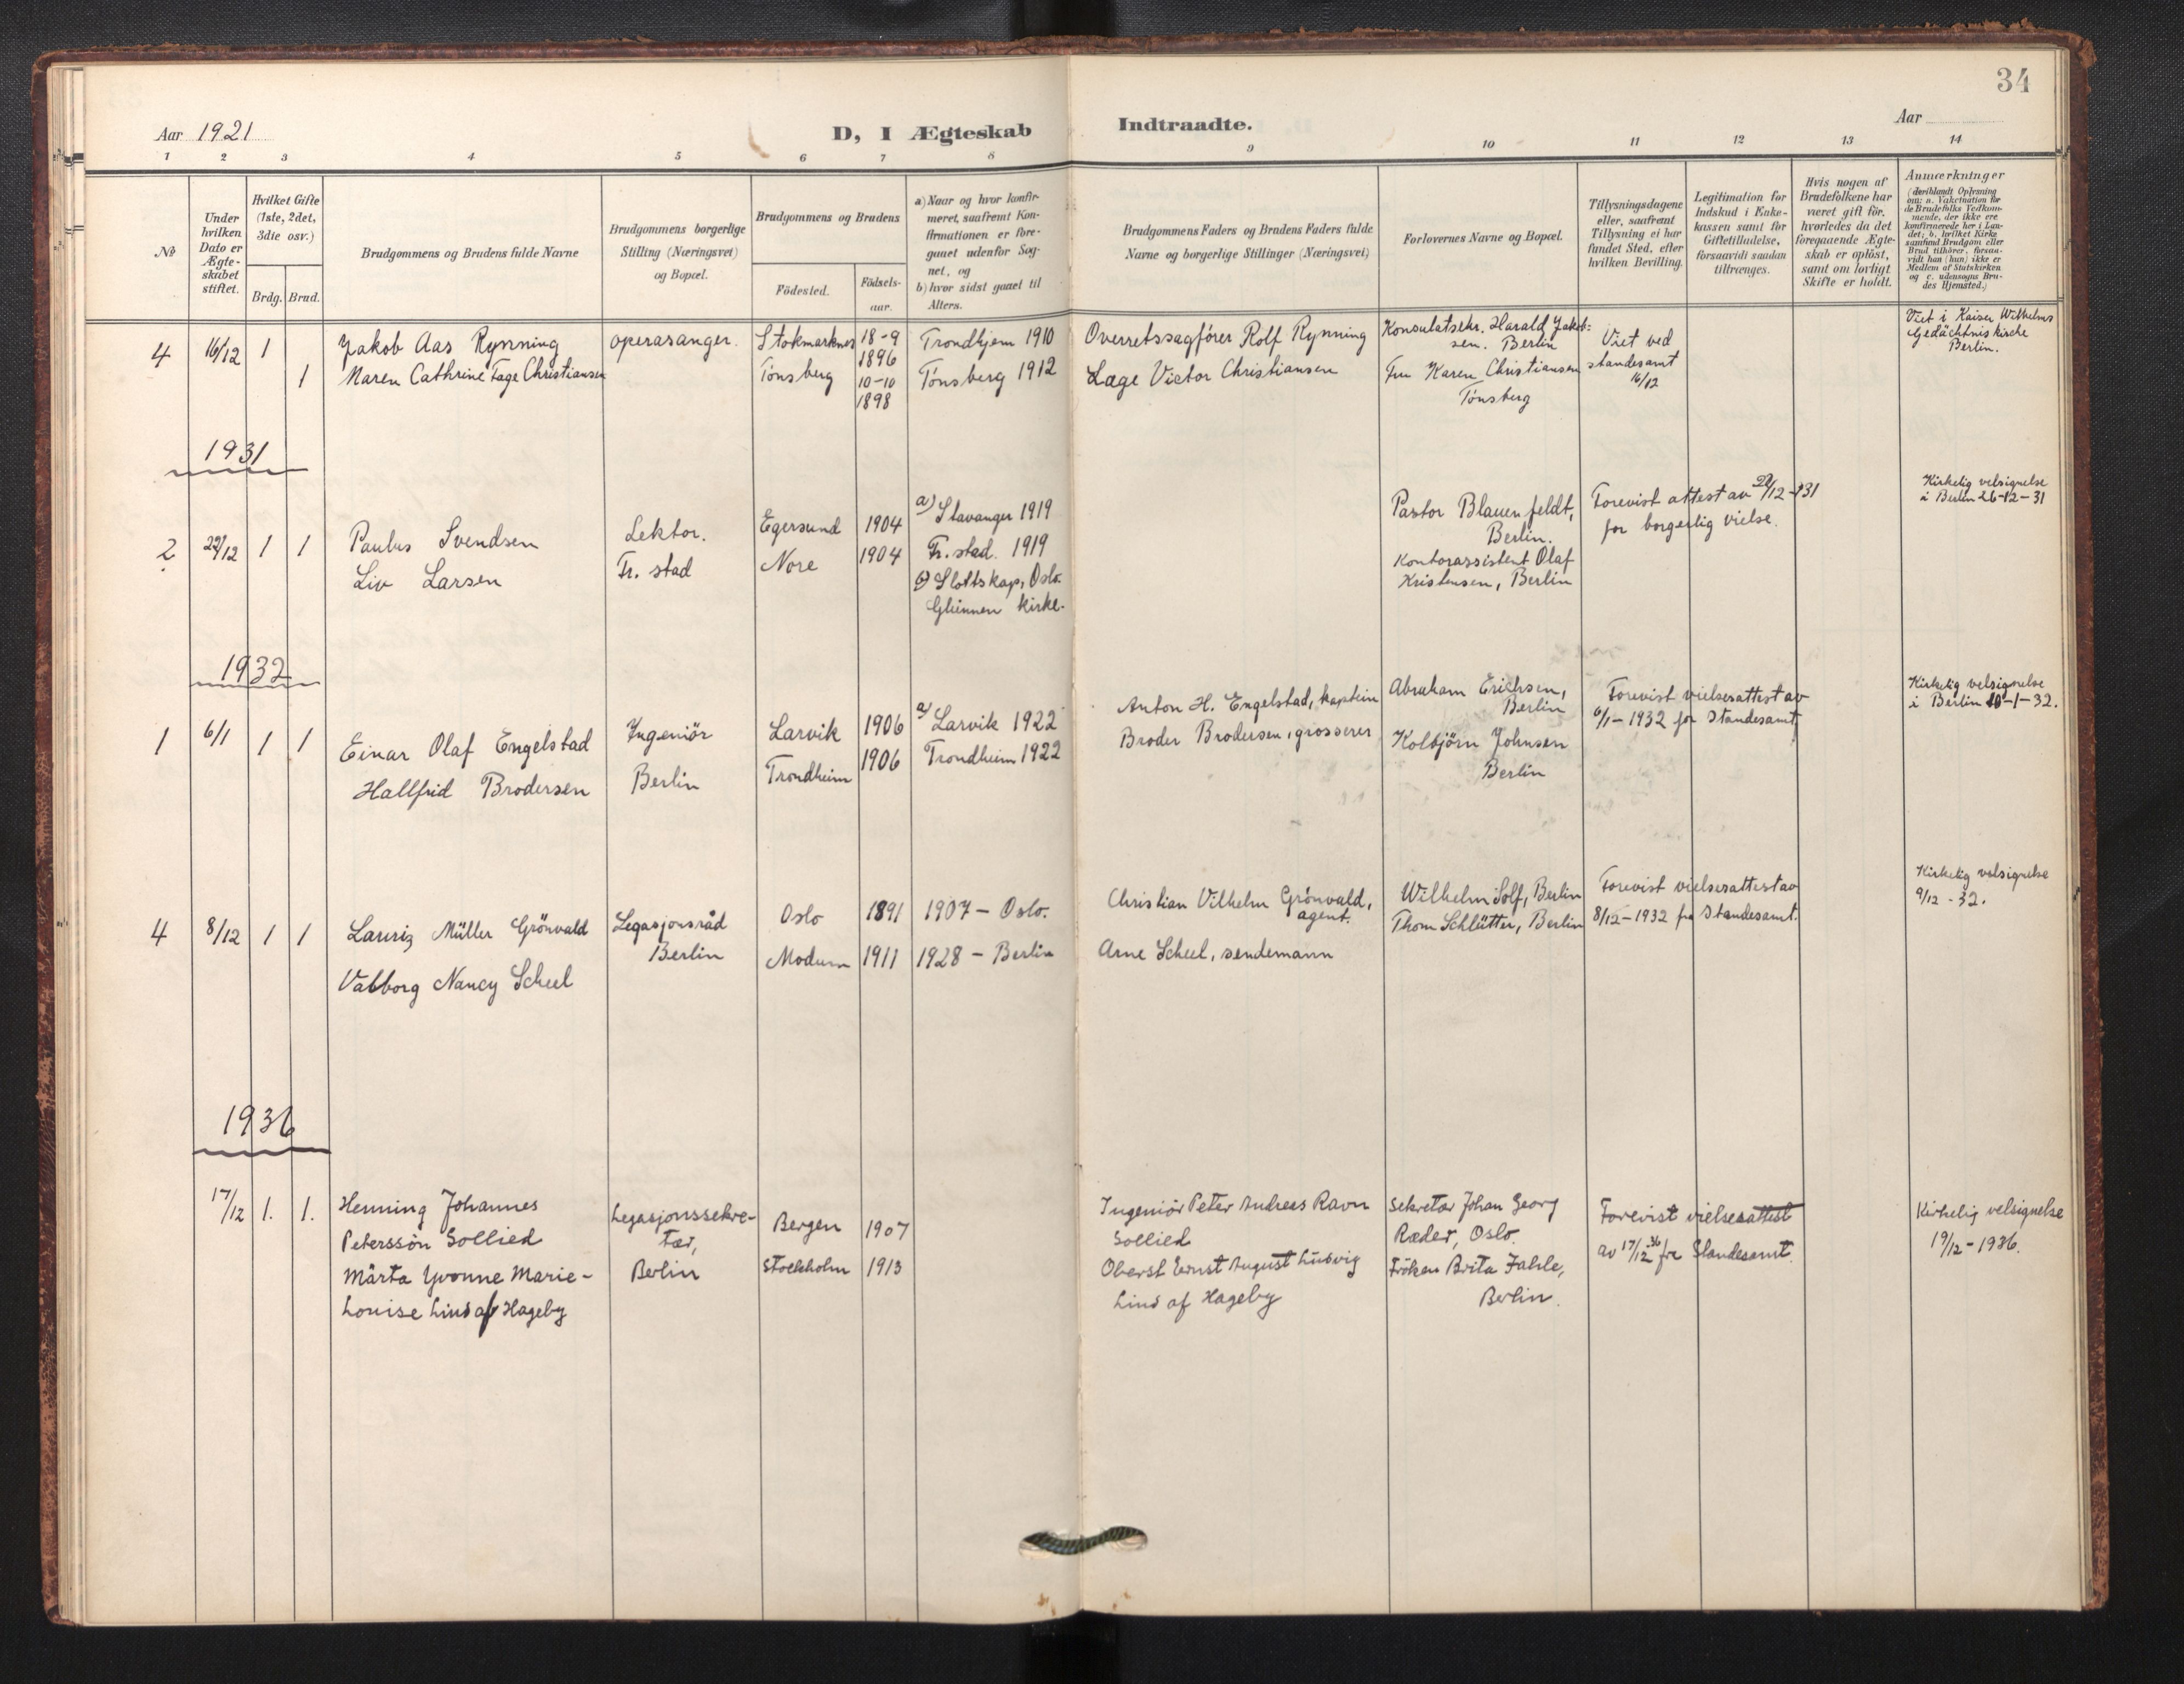 34
Aar 1921
D, I Ægteskab Indtraadte.
Aar
1 2 3 4 5 6 7 8 9 10 11 12 13 14
No
Under hvilken Dato er Ægte-skabet stiftet.
Hvilket Gifte (1ste, 2det, 3die osv.)
Brdg. Brud.
Brudgommens og Brudens fulde Navne
Brudgommens borgerlige Stilling (Næringsvei) og Bopæl.
Brudgommens og Brudens
Födested.
Födsels-aar.
a) Naar og hvor konfir-
meret, saafremt Kon-
firmationen er fore-
gaaet udenfor Sog-
net, og
b) hvor sidst gaaet til
Alters.
Brudgommens Faders og Brudens Faders fulde
Navne og borgerlige Stillinger (Næringsvei)
Forlovernes Navne og Bopæl.
Tillysningsdagene
eller, saafremt
Tillysning ei har
fundet Sted, efter
hvilken Bevilling.
Legitimation for
Indskud i Enke-
kassen samt for
Giftetilladelse,
forsaavidt saadan
tiltrænges.
Hvis nogen af
Brudefolkene har
været gift för,
hvorledes da det
foregaaende Ægte-
skab er oplöst,
samt om lovligt
Skifte er holdt.
Anmærkninger
(deriblandt Oplysning
om: a. Vakcination for
de Brudefolks Vedkom-
mende, der ikke ere
konfirmerede her i Lan-
det; b. hvilket Kirke
samfund Brudgom eller
Brud tilhører, forsaa-
vidt han (hun) ikke er
Medlem af Statskirken
og c. udensogns Bru-
des Hjemsted.)
4 16/12 1
1
Jakob Aas Rynning
Maren Cathrine Fage Christiansen
operasanger.
Stokmarknes
Tönsberg
18-9
1896
10-10
1898
Trondhjem 1910
Tönsberg 1912
Overretssagförer Rolf Rynning
Læge Victor Christiansen
Konsulatsekr. Harald Jakob-
sen. Berlin
Fru Karen Christiansen
Tönsberg
Viet ved
standesamt
16/12
Viet i Kaiser Wilhelms
Gedächtniskirche
Berlin.
1931
2 29/12 1 1
Paulus Svendsen
Liv Larsen
Lektor.
Fr. stad
Egersund
Nore
1904
1904
a) Stavanger 1919
Fr. stad. 1919
Slottskap, Oslo.
Glemmen kirke.
Pastor Blauenfeldt,
Berlin.
Kontorassistent Olaf
Kristensen, Berlin
Forevist attest av 29/12-31
for borgerlig vielse.
Kirkelig velsignelse
i Berlin 26-12-31
1932
1 6/1 1 1
Einar Olaf Engelstad
Hallfrid Brodersen
Ingeniör
Berlin
Larvik
Trondheim
1906
1906
a) Larvik 1922
Trondheim 1922
Anton H. Engelstad, kaptein
Broder Brodersen, grosserer
Abraham Erichsen,
Berlin
Kolbjörn Johnsen
Berlin
Forevist vielsesattest av
6/1-1932 fra Standesamt
Kirkelig velsignelse
i Berlin 10-1-32.
4 8/12 1 1
Lauriz Müller Grönvald
Valborg Nancy Scheel
Legasjonsråd
Berlin
Oslo
Modum
1891
1911
1907 - Oslo.
1928 - Berlin
Christian Vilhelm Grönvald,
agent.
Arne Scheel, sendemann
Wilhelm Solf, Berlin
Thom Schlütter, Berlin
Forevist vielsesattest av
8/12-1932 fra Standesamt.
Kirkelig velsignelse
9/12-32.
1936
17/12 1. 1.
Henning Johannes
Peterssön Sollied
Märta Yvonne Marie-
Louise Lind af Hageby
Legasjonssekre-
tær,
Berlin
Bergen
Stockholm
1907
1913
Ingeniör Peter Andreas Ravn
Sollied
Oberst Ernst August Ludvig
Lind af Hageby
Sekretær Johan Georg
Ræder, Oslo.
Fröken Brita Fahle,
Berlin.
Forevist vielsesattest
av 17/12 36 fra Standesamt.
Kirkelig velsignelse
19/12-1936.